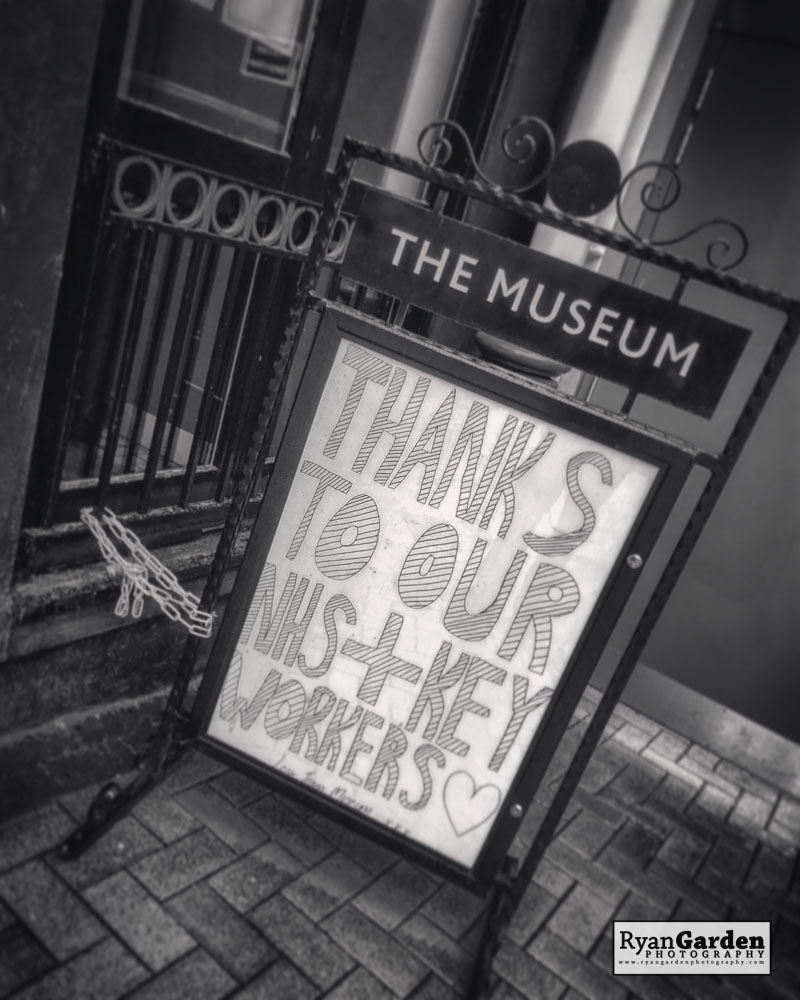 THE MUSEUM
THANKS
TO OUR
NHS + KEY
WORKERS
RyanGarden
PHOTOGRAPHY
www.ryangardenphotography.com